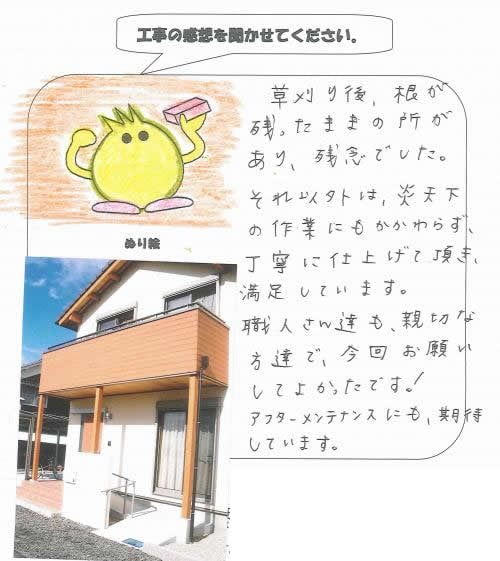 工事の感想を聞かせてください。
草刈り後、根が
残ったままの所が
あり、残念でした。
それ以外は、炎天下
の作業にもかかわらず、
丁寧に仕上げて頂き、
満足しています。
職人さん達も、親切な
方達で、今回お願い
してよかったです!
アフターメンテナンスにも、期待
しています。
ぬり絵